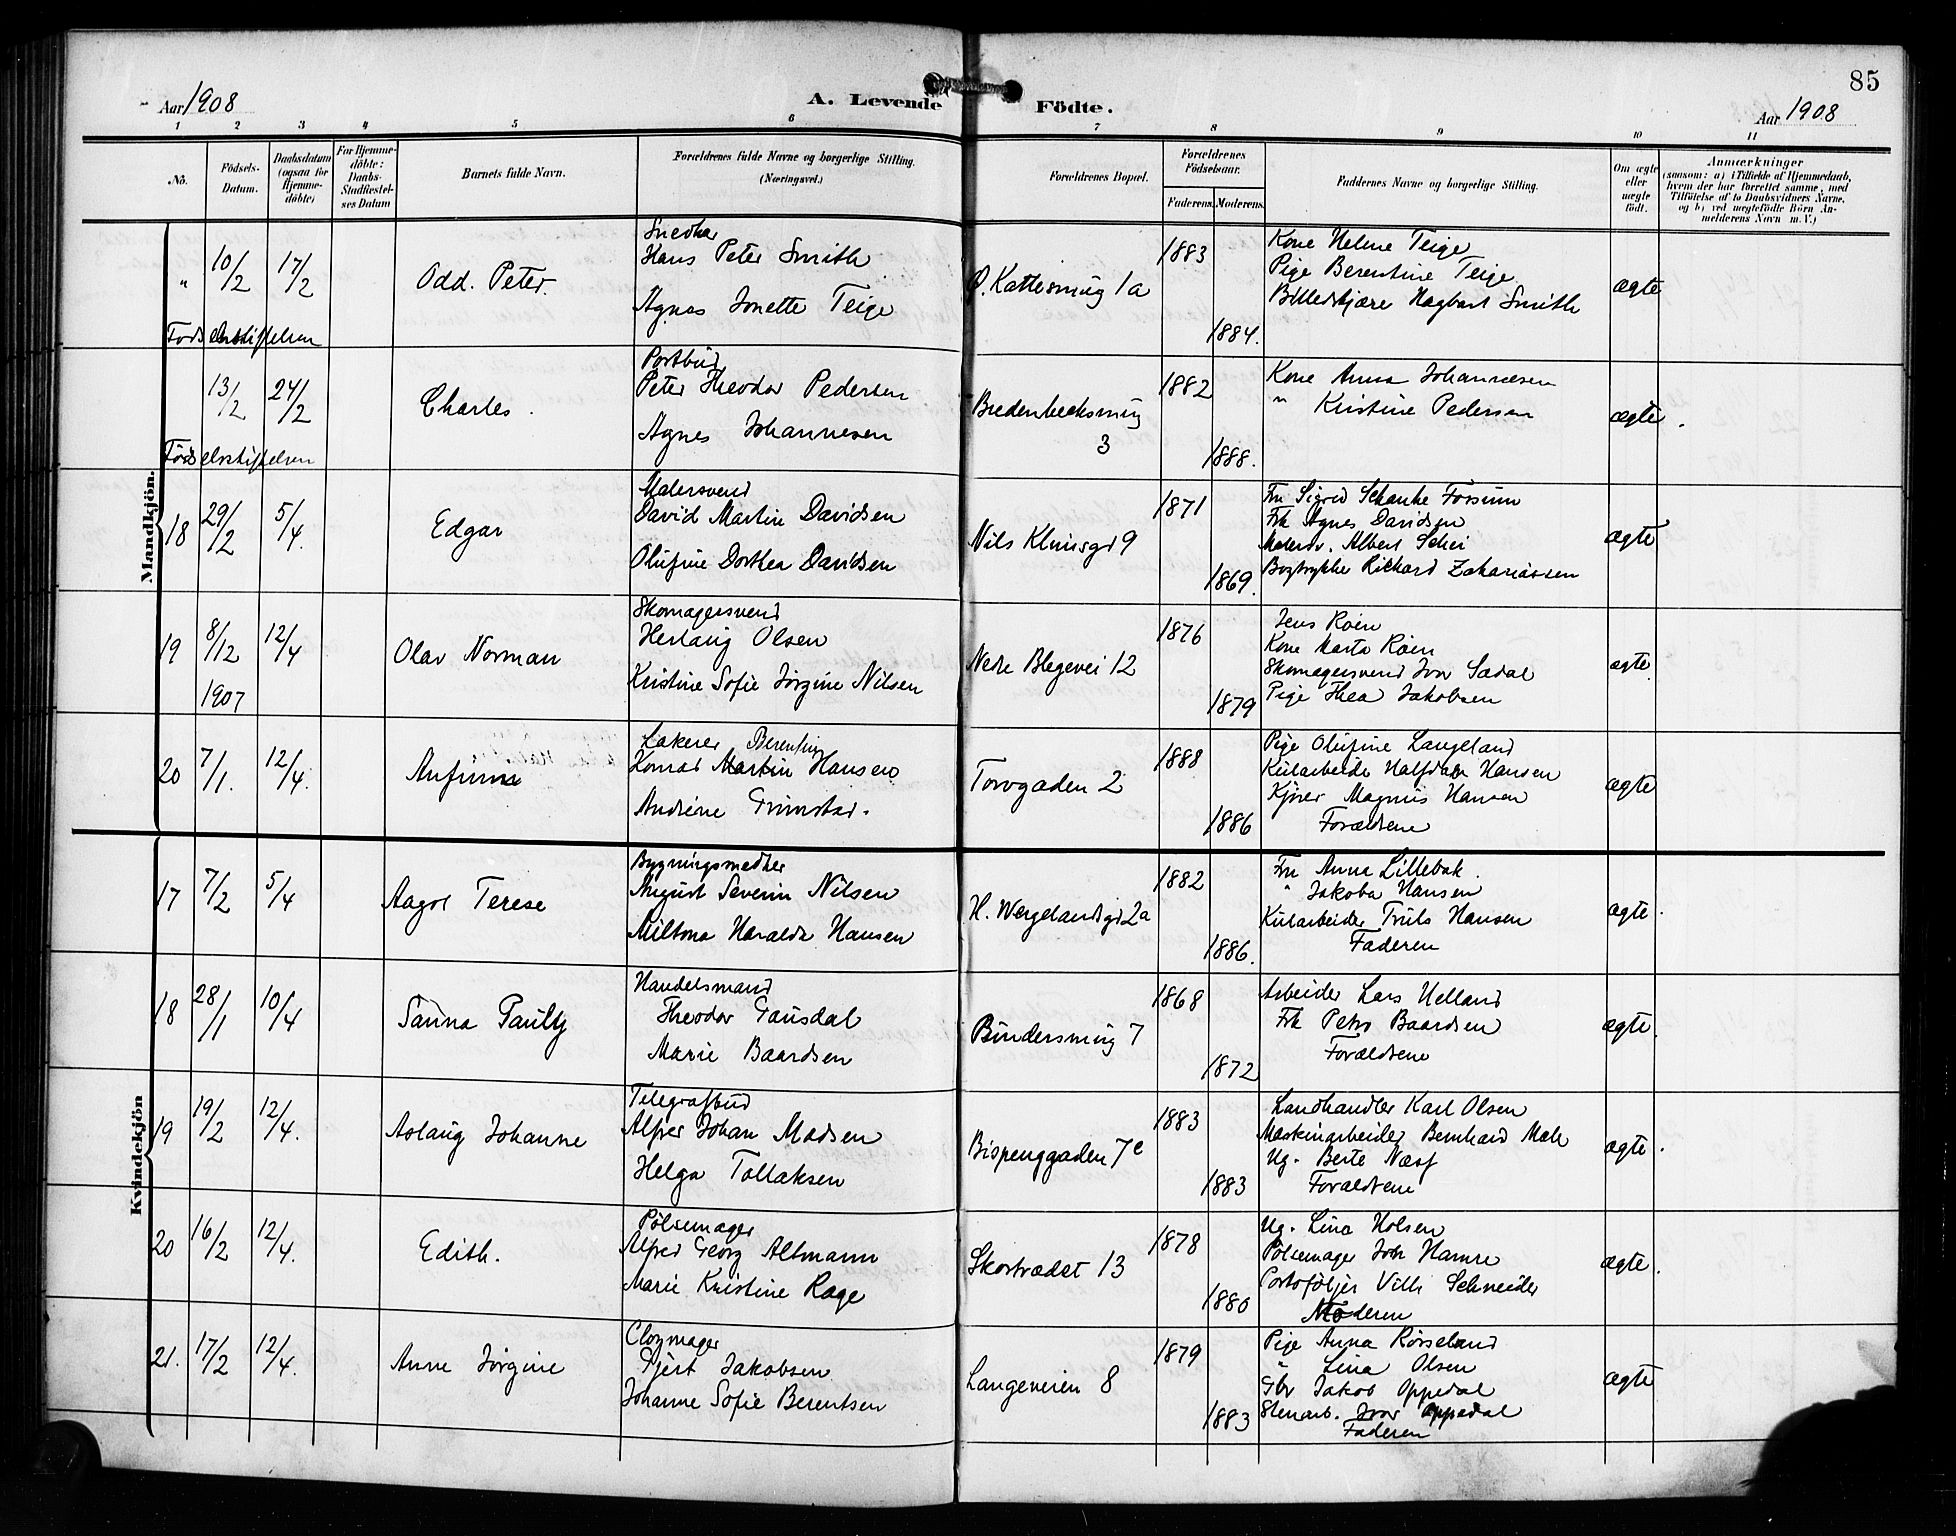 85
Aar 1908
A. Levende Födte.
Aar 1908
1 2 3 4 5 6 7 8 9 10 11
No.
Födsels-Datum.
Daabsdatum (ogsaa for Hjemmedöbte)
For Hjemmedöbte: Daabs-Stadfæstelses Datum
Barnets fulde Navn.
Forældrenes fulde Navne og borgerlige Stilling. (Næringsvei.)
Forældrenes Bopæl.
Forældrenes Födselsaar.
Faderens. Moderens.
Faddernes Navne og borgerlige Stilling.
Om ægte eller uægte födt.
Anmærkninger
(saasom: a) i Tilfælde af Hjemmedaab,
hvem der har forrettet samme, med
Tilföielse af to Daabsvidners Navne,
og b) ved uægtefödte Börn An-
melderens Navn m. V.)
Mandkjön.
" 10/2 17/2
Odd. Peter.
Snedker
Hans Peter Smith
Agnes Jonette Teige
Ø. Kattesmug 1a
1883
1884.
Kone Helene Teige
Pige Berentine Teige
Billedskjære Hagbart Smith
ægte
Fødselsstiftelsen
13/2 24/2
Charles.
Postbud
Peter Theodor Pedersen
Agnes Johannesen
Bredenbecksmug
3
1882
1888.
Kone Anna Johannesen
" Kristine Pedersen
ægte.
Fødselsstiftelsen
18 29/2 5/4.
Edgar
Malersvend
David Martin Davidsen
Olufine Dorthea Davidsen
Nils Klimsgd 9
1871
1869.
Fru Sigrid Schanke Forsum
Frk Agnes Davidsen
Malersv. Albert Schei
Bogtrykke Rickard Zakariassen
ægte
19 8/12 12/4
1907
Olav Norman
Skomagersvend
Herlaug Olsen
Kristine Sofie Jørgine Nilsen
Nedre Blegevei 12
1876
1879
Jens Røen
Kone Marta Røen
Skomagersvend Ivar Sædal
Pige Thea Jakobsen
ægte.
20 7/1. 12/4.
Anfinn
Lakerer Berentin
Konrad Martin Hansen
Andrine Grimstad.
Torvgaden 2
1888
1886
Pige Olufine Langeland
Kularbeide Halfdan Hansen
Kjører Magnus Hansen
Forældrene
ægte
Kvindekjön
17 7/2 5/4
Aagot Terese
Bygningssnedker
August Severin Nilsen
Miltona Haralda Hansen
H. Wergelandsgd 2a
1882
1886.
Fru Anna Lillebak.
" Jakoba Hansen
Kularbeider Truls Hansen
Faderen
ægte.
18 28/1 10/4
Sanna Pauly
Handelsmand
Theodor Gausdal
Marie Baardsen
Bindersmug 7
1868
1872
Arbeider Lars Helland
Frk Petra Baardsen
Forældrene
ægte.
19 19/2 12/4.
Aslaug Johanne
Telegrafbud
Alfred Johan Madsen
Helga Tollaksen
Bispenggaden 7c
1883
1883
Landhandler Karl Olsen
Maskinarbeider Bernhard Mæle
Ug. Berte Næss
Forældrene
ægte.
20 16/2 12/4.
Edith.
Pølsemager
Alfred Georg Altmann
Marie Kristine Rage
Skostrædet 13
1878
1880
Ug. Lina Holsen
Pølsemager Joh Hamre
Portoføljer Villi Schneider
Moderen
ægte.
21. 17/2 12/4.
Anne Jørgine
Clogmager
Gjert Jakobsen
Johanne Sofie Berentsen
Langeveien 8
1879
1883
Pige Anna Rørseland
" Lina Olsen
Gbr Jakob Oppedal
Stenarb. Ivar Oppedal
Faderen
ægte